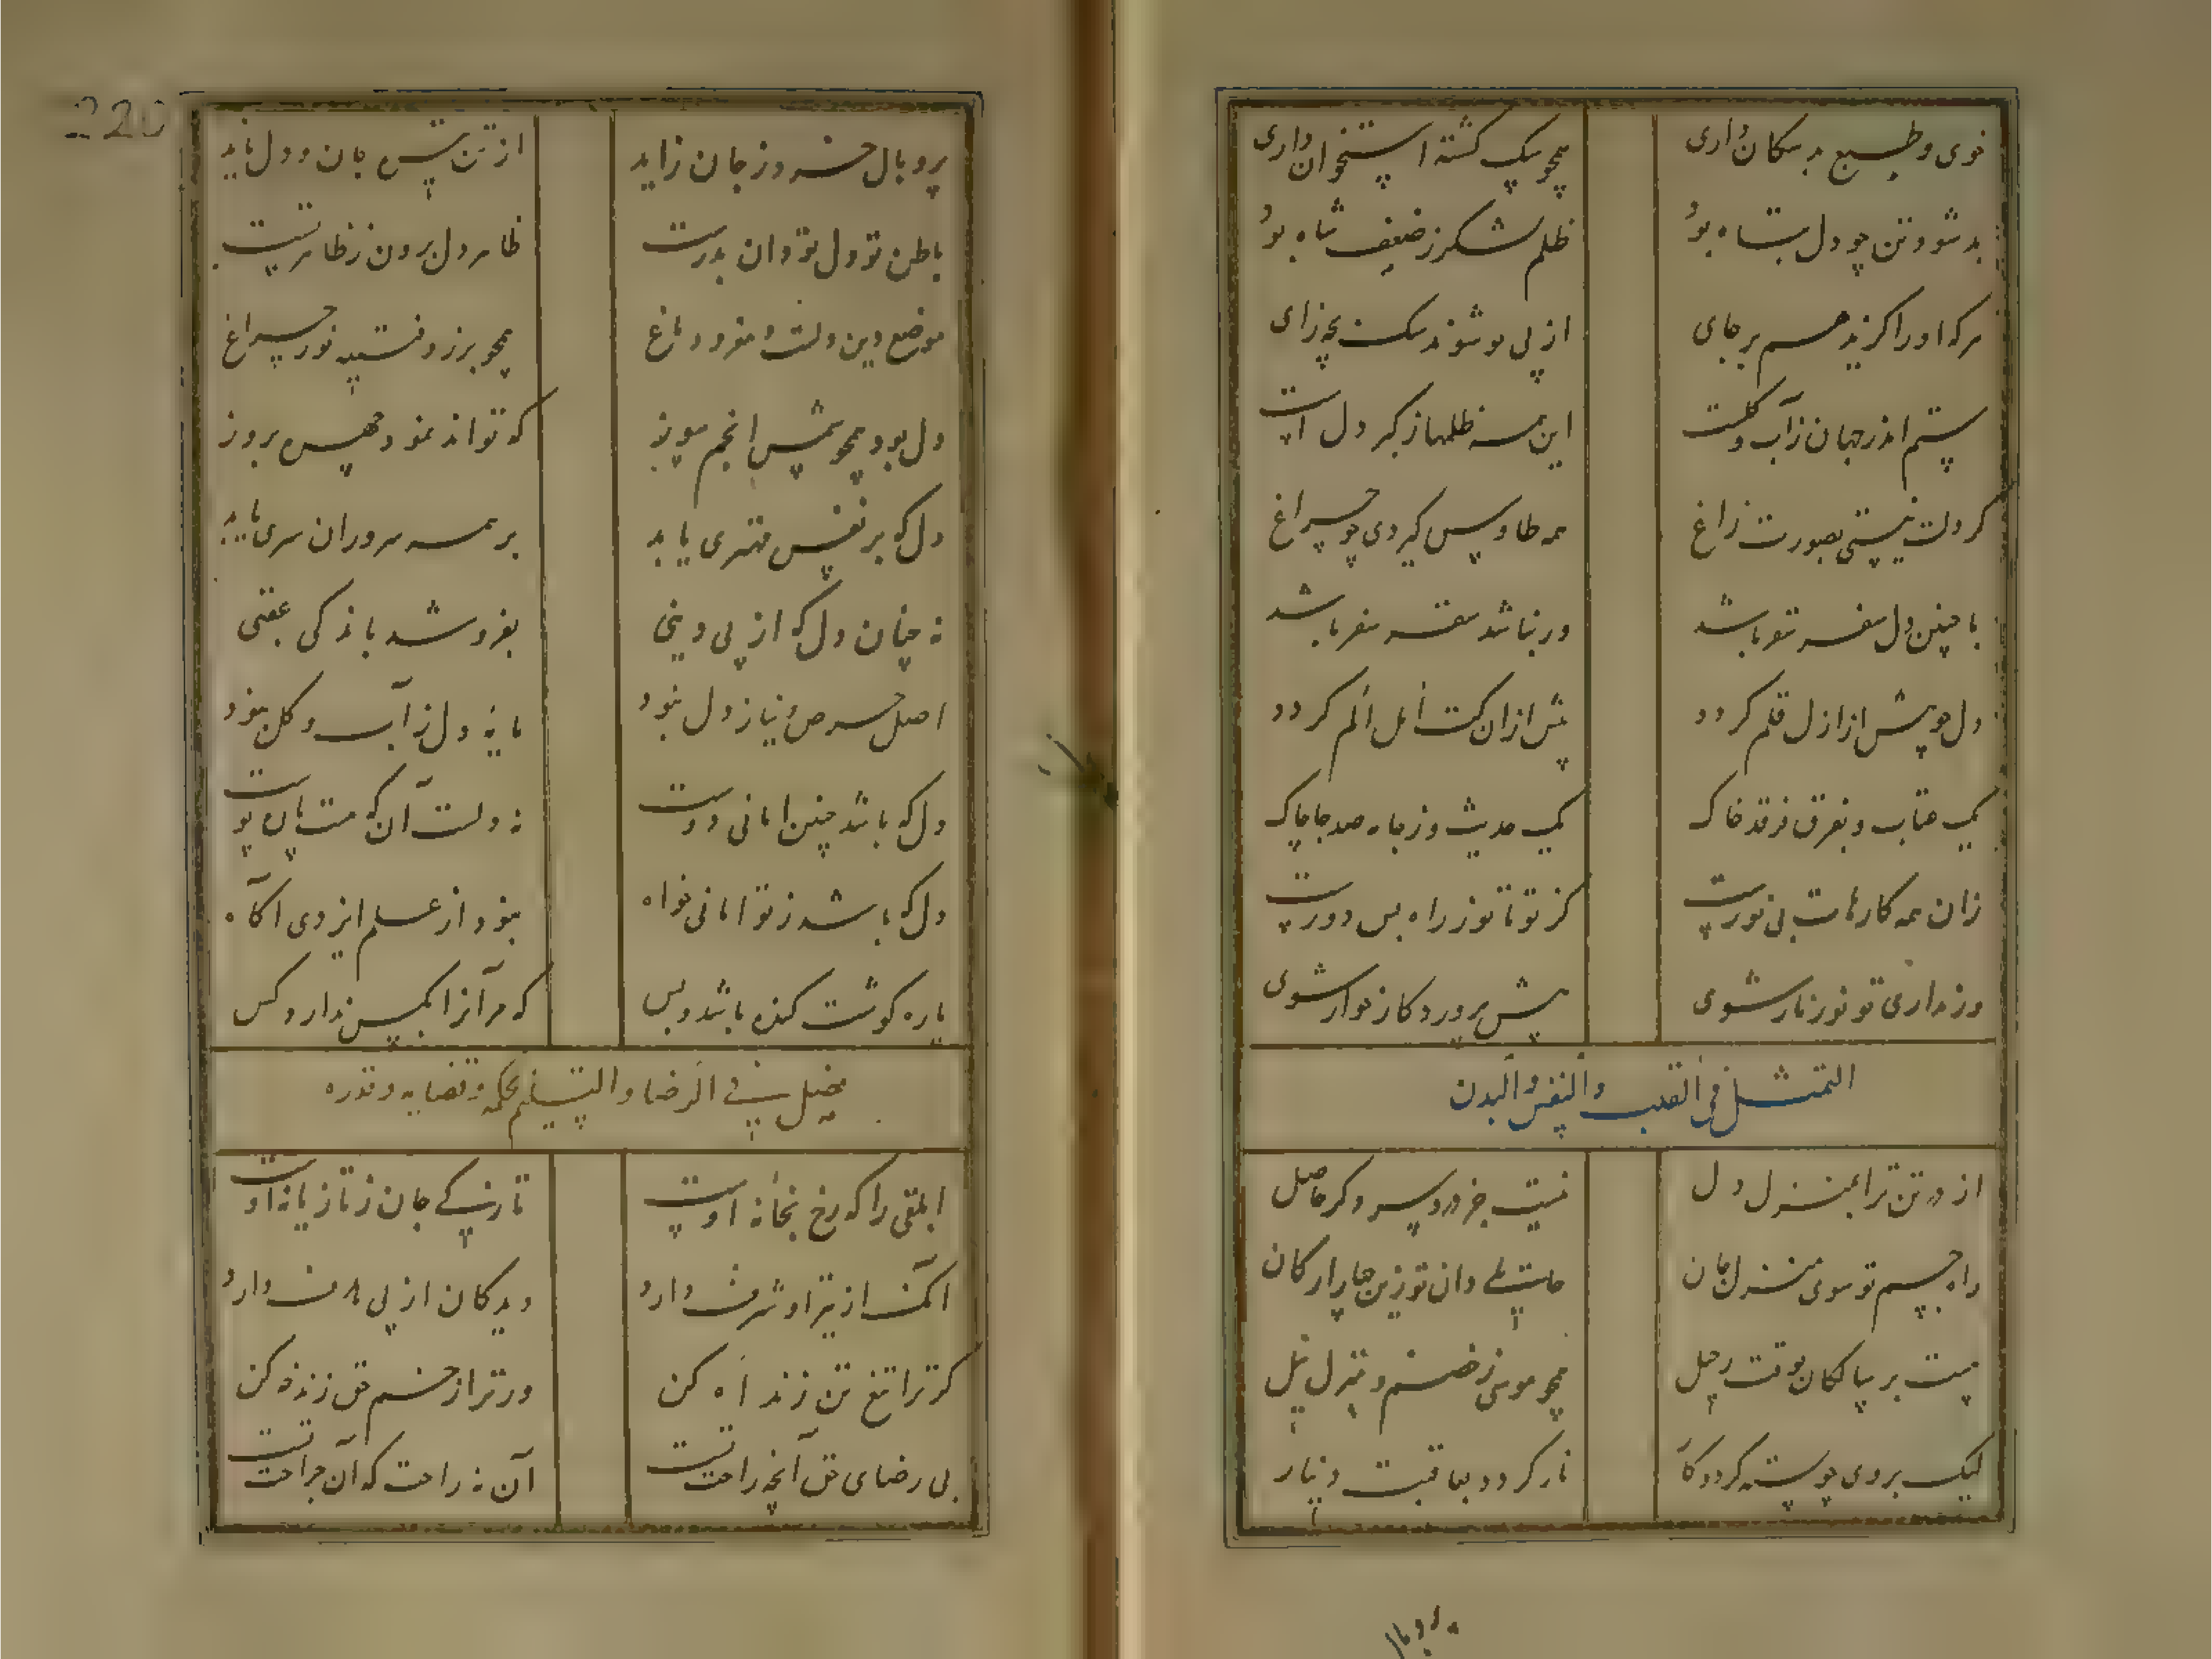 خوی و طبع بد سکان داری
همچو سک کشته استخوان داری
بد شود تن چو دل تباه بود
ظلم لشکر ز ضعف شاه بود
هرکه او را کزید هم بر جای
از پی او شوند سک بچه زای
ستم اندر جهان ز آب و کلست
این همه ظلمها ز کبر دل است
کر دلت نیستی بصورت زاغ
همه طاوس کیردی چو چراغ
با چنین دل سفه سقر باشد
ور نباشد سفه سقر باشد
دل چو پیش از ازل قلم کردد
پیش از آن کت امل الم کردد
یک عتاب و بفرق فرقد خاک
یک حدیث و ز جاه صد جا چاک
زان همه کارهات بی نورست
کز تو تا نور راه بس دورست
ور نداری تو نور نار شوی
پیش پروردکار خوار شوی
التمثل فی القلب والنفس والبدن
از در تن ترا بمنزل دل
نیست جز درد سر دکر حاصل
راه جسم تو سوی منزل جان
حاستلی دان تو زین چار ارکان
هست بر سالکان بوقت رحیل
همچو موسی ز خصم و منزل نیل
لیک بر وی چو بسته کردد کار
نار کردد بعاقبت دینار
پر و بال
220
پر و بال خرد ز جان زاید
از تن تست جان و دل ناید
باطن تو دل تو دان بدرست
ظاهر دل برون ز ظاهر تست
موضع دین دلت و مغز و دماغ
همچو برزد فتیله نور چراغ
دل بود همچو شمس انجم سوز
که تواند نمود چهره بروز
دل که بر نفس مهتری یابد
بر همه سروران سری یابد
نه چنان دل که از پی دینی
بفروشد باندکی عقبی
اصل حرص و نیاز دل نبود
مایه دل ز آب و کل نبود
دل که باشد چنین امانی دوست
نه دلت آن که هست پاره پوست
دل که باشد ز تو امانی خواه
نبود از علم ایزدی آکاه
پاره کوشت کنده باشد و بس
که مر آنرا بکس ندارد کس
فصل فی الرضا والتسلیم بحکمه وقضایه وقدره
ابلقی را که رخ بخانه اوست
تارکی جان ز تازیانه اوست
آنکه از تیر او شرف دارد
دیدکان از پی هدف دارد
کر ترا تیغ تن زند اه کن
ور ترا زخم حق زند خه کن
بی رضای حق آنچه راحت تست
آن نه راحت که آن جراحت تست